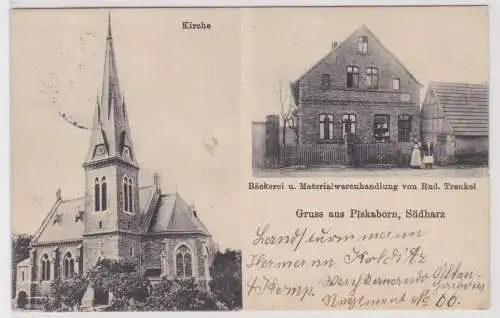 Kirche
Bäckerei u. Materialwarenhandlung von Rud. Trenkel
Gruss aus Piskaborn, Südharz
Landsturmmann
Hermann Kolditz
4 Komp.
Regiment No 60.